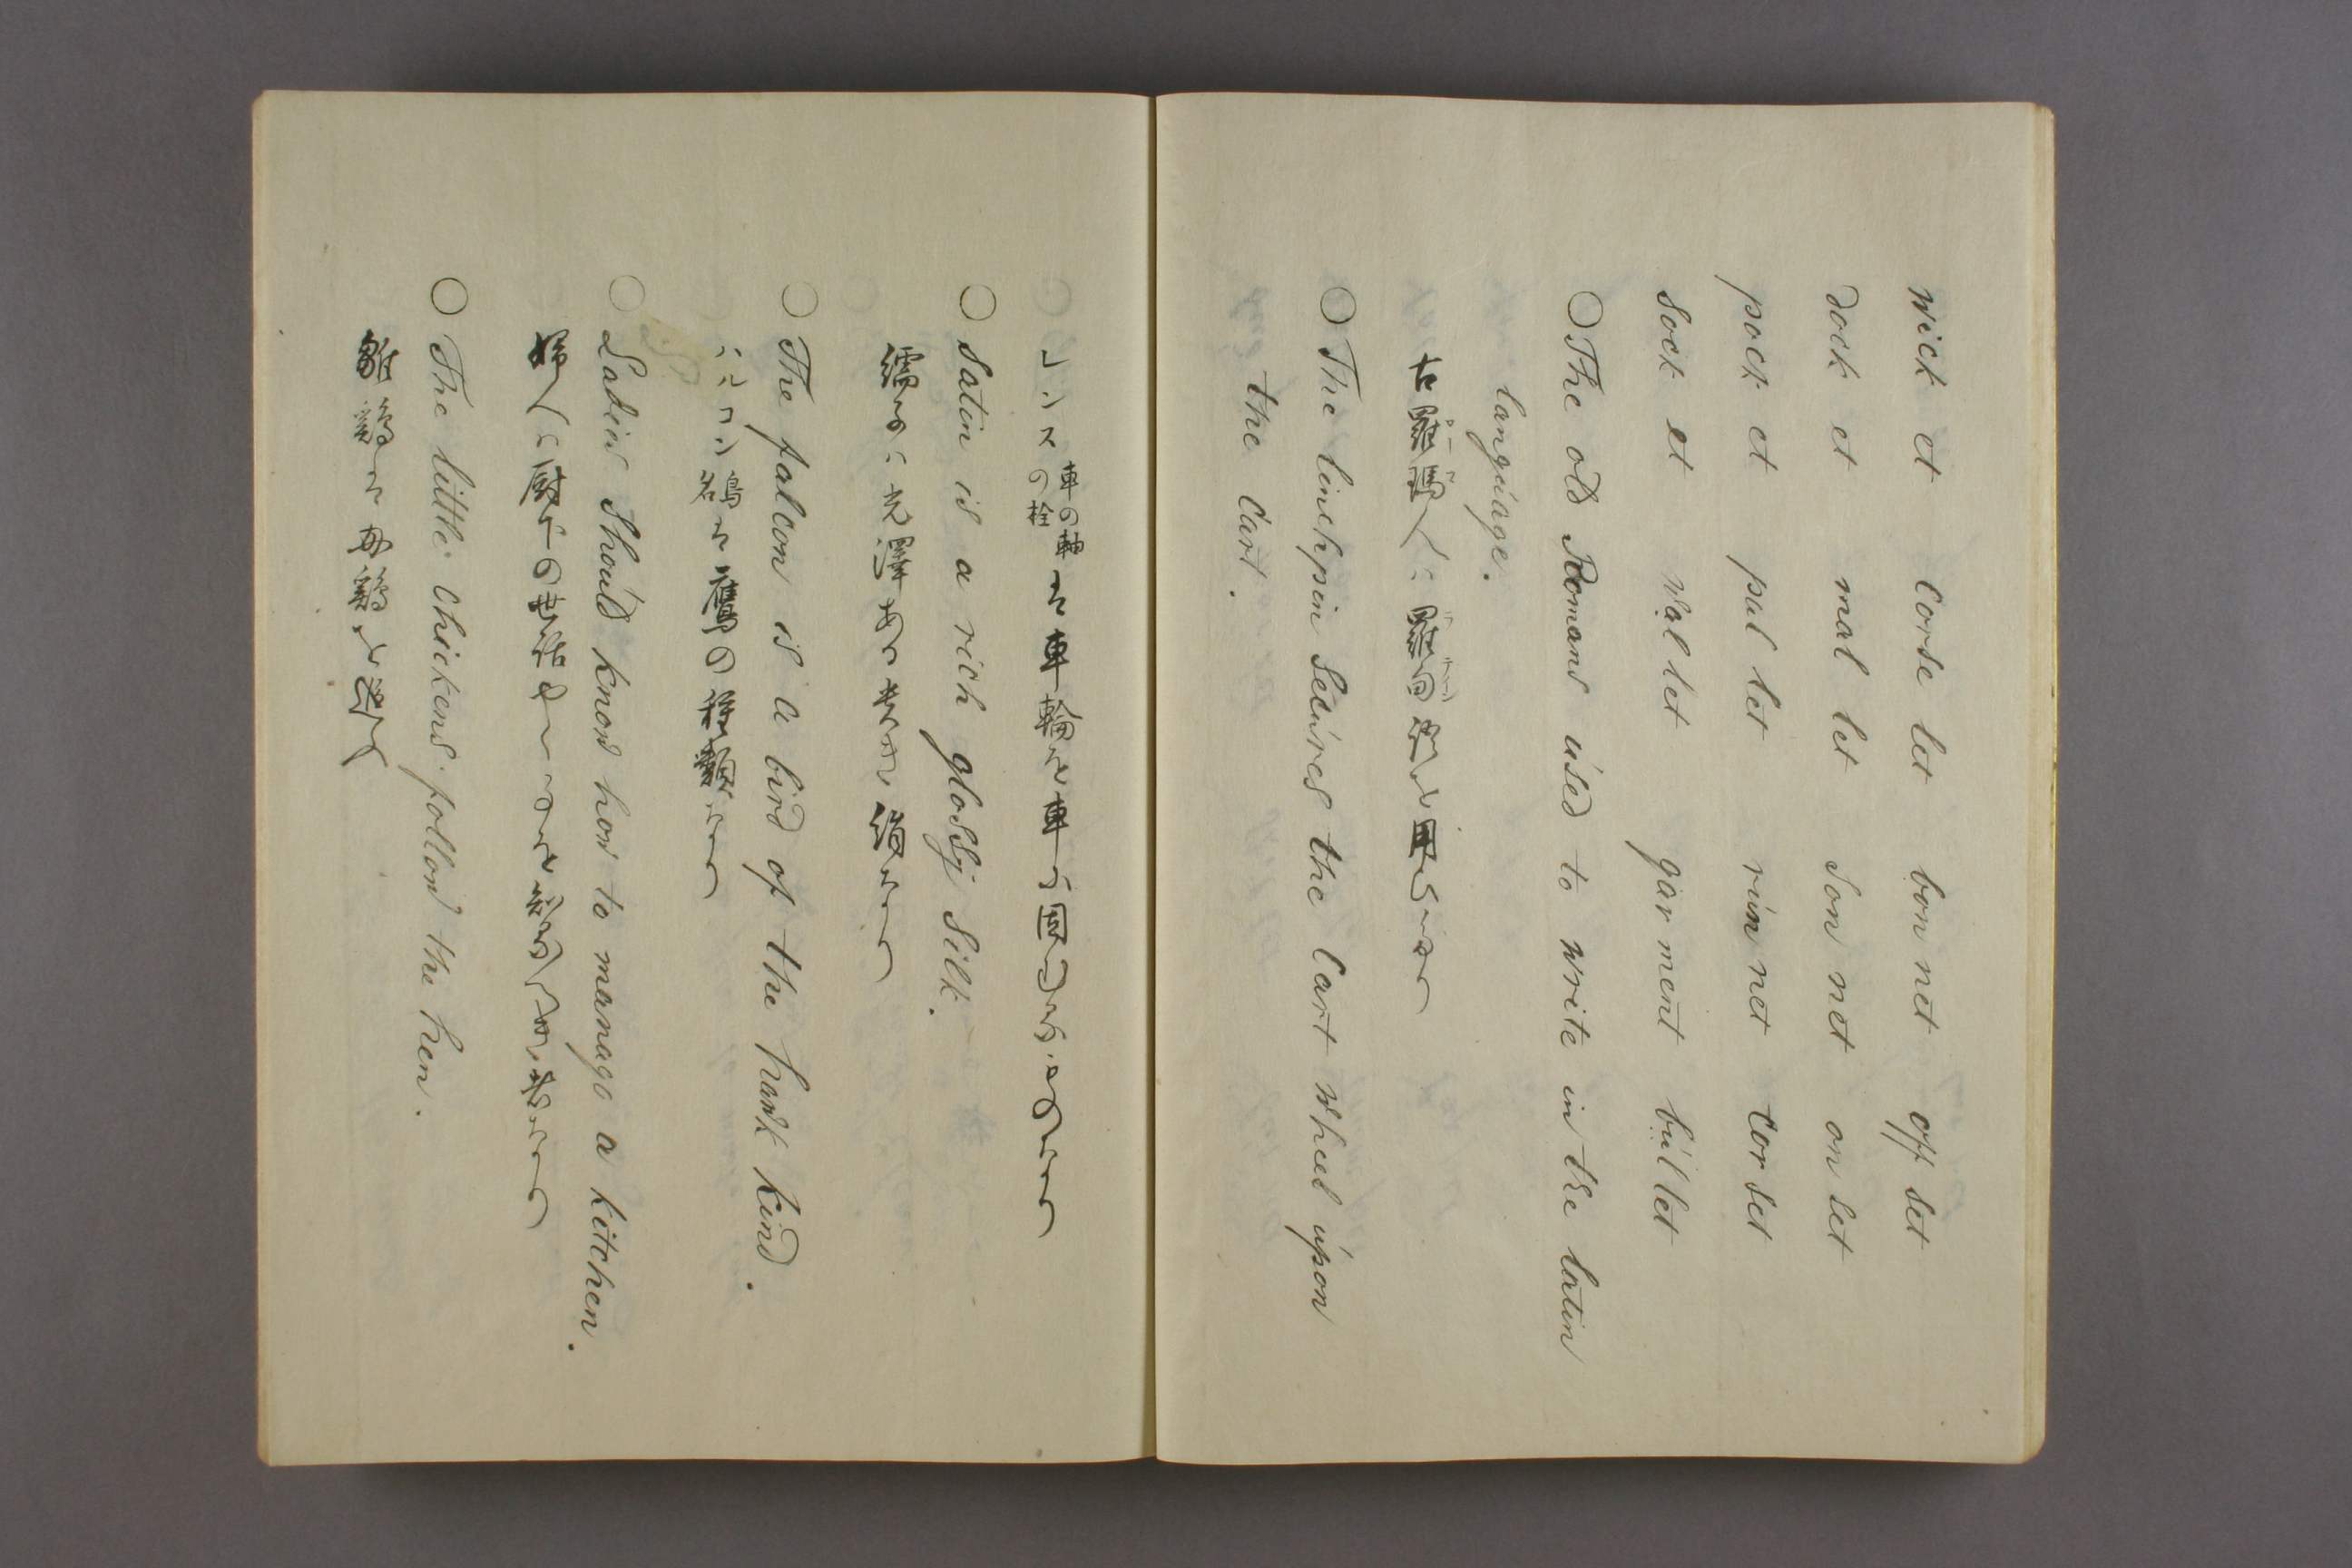 wick et corse let bon net off set
dock et mal let son net on set
pock et pal let run net cor set
sock et wal let gar ment bul let
○The old Romans used to write in the latin
language.
古羅瑪人ハ羅甸語を用ひ
ローマ ラテイン
○The linchpin secures the cart wheel upon
the cart.
レンス車の軸の栓は車輪を車に固むる
○Satin is a rich glossy silk.
繻子ハ光澤ある美き絹なり
○The falcon is a bird of the hawk kind.
ハルコン鳥名は鷹の種類なり
○Ladies should know how to manage a kitchen.
婦人ハ厨下の世話
○The little chickens follow the hen.
雛鶏は母鶏を逐ふ